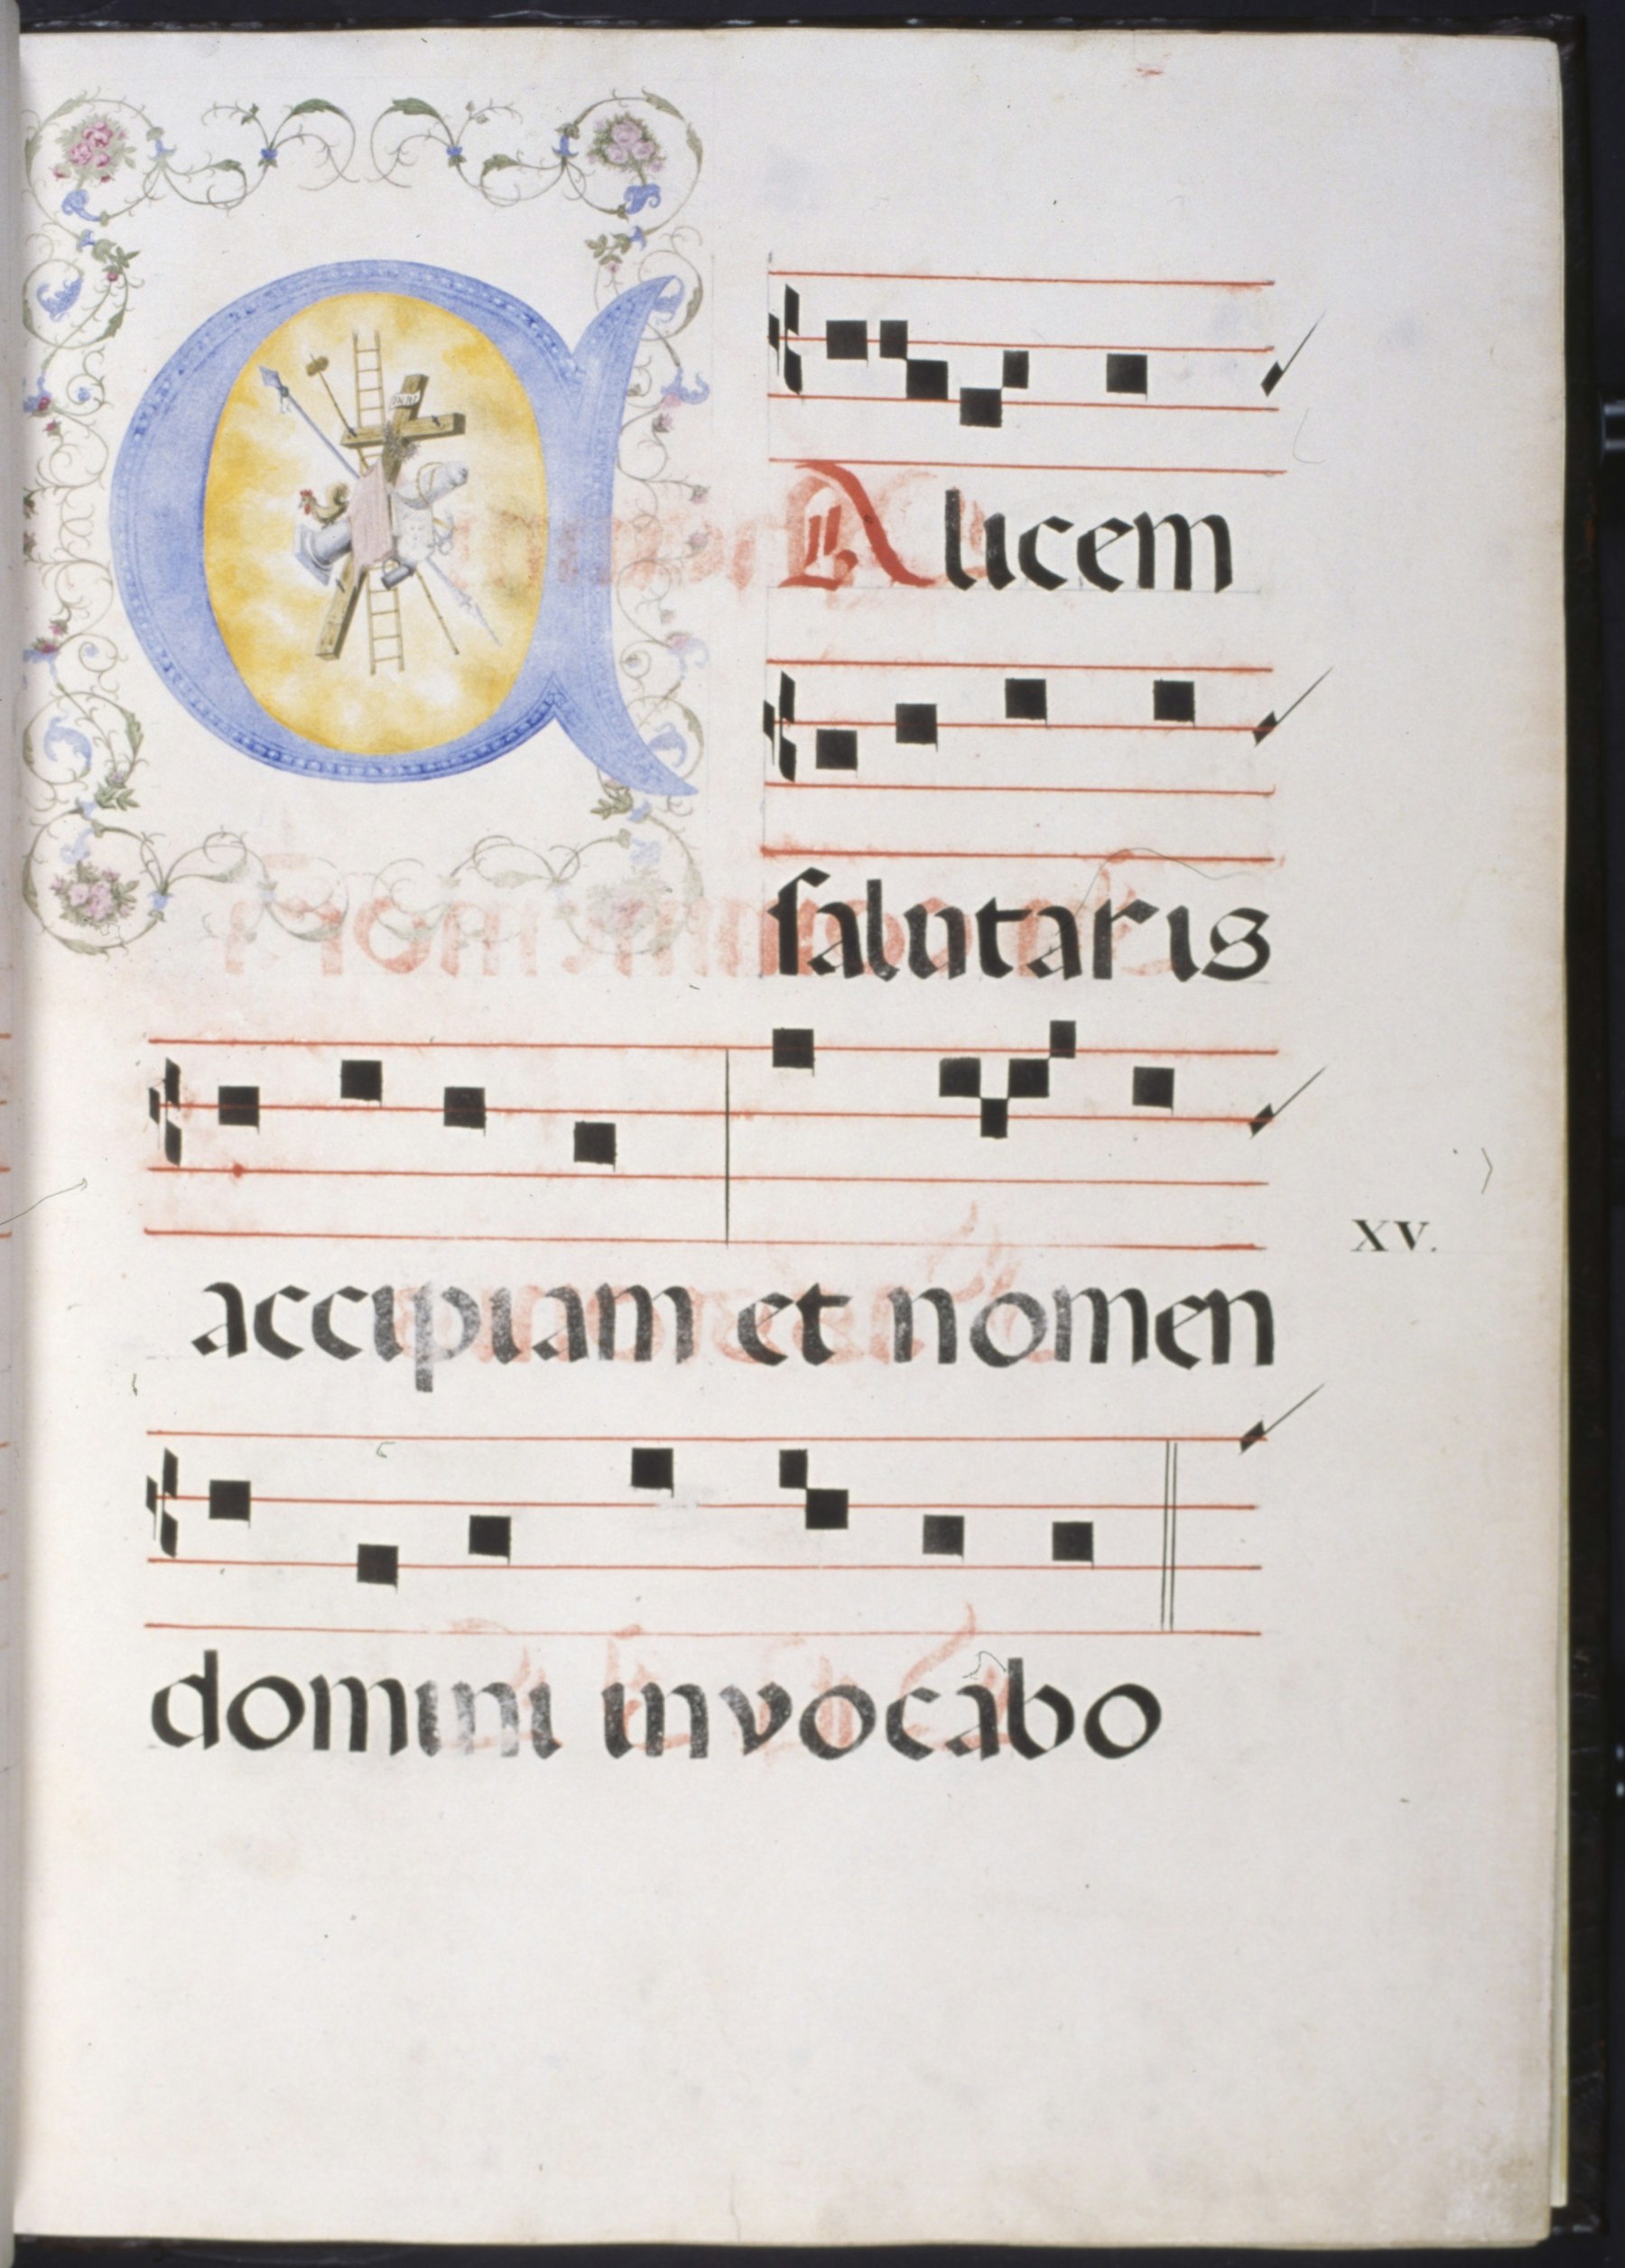 CALicem
salutaris
accipiam et nomen
XV.
domini invocabo